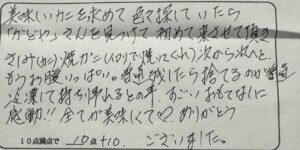 美味しいカニを求めて色々探していたら
「かどや」さんを見つけて初めて来させて頂き
さしみ(カニ)焼ガニ(いろりで焼いてくれ)次から次へと
もうお腹いっぱい。普通残したら捨てるのが普通
冷凍して持ち帰れるとの事、すごいおもてなしに
感動!!全てが美味しくて♡ありがとう
10点満点で 10点+10. ございました。